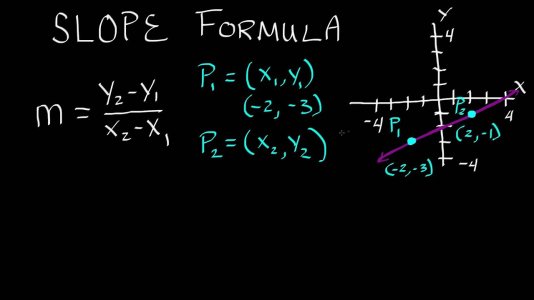 SLOPE FORMULA
m = (y₂ - y₁) / (x₂ - x₁)
P₁ = (x₁, y₁)
(-2, -3)
P₂ = (x₂, y₂)
Y
4
X
-4
4
-4
P₁
(-2, -3)
P₂
(2, -1)